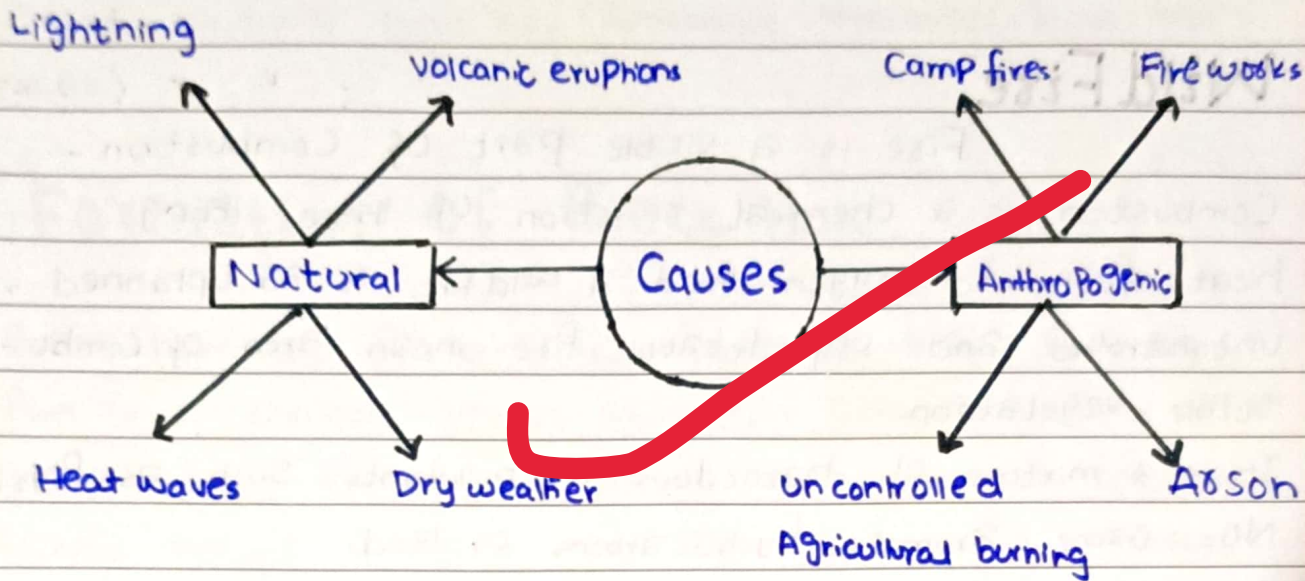 Lightning
Volcanic eruptions
Camp fires
Fire works
Natural
Causes
Anthropogenic
Heat waves
Dry weather
Uncontrolled
Agricultural burning
Arson